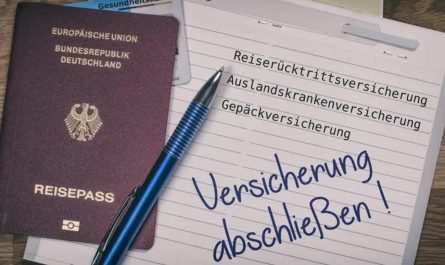 Gesundheitsk
EUROPÄISCHE UNION
BUNDESREPUBLIK
DEUTSCHLAND
REISEPASS
Reiserücktrittsversicherung
Auslandskrankenversicherung
Gepäckversicherung
Versicherung
abschließen !